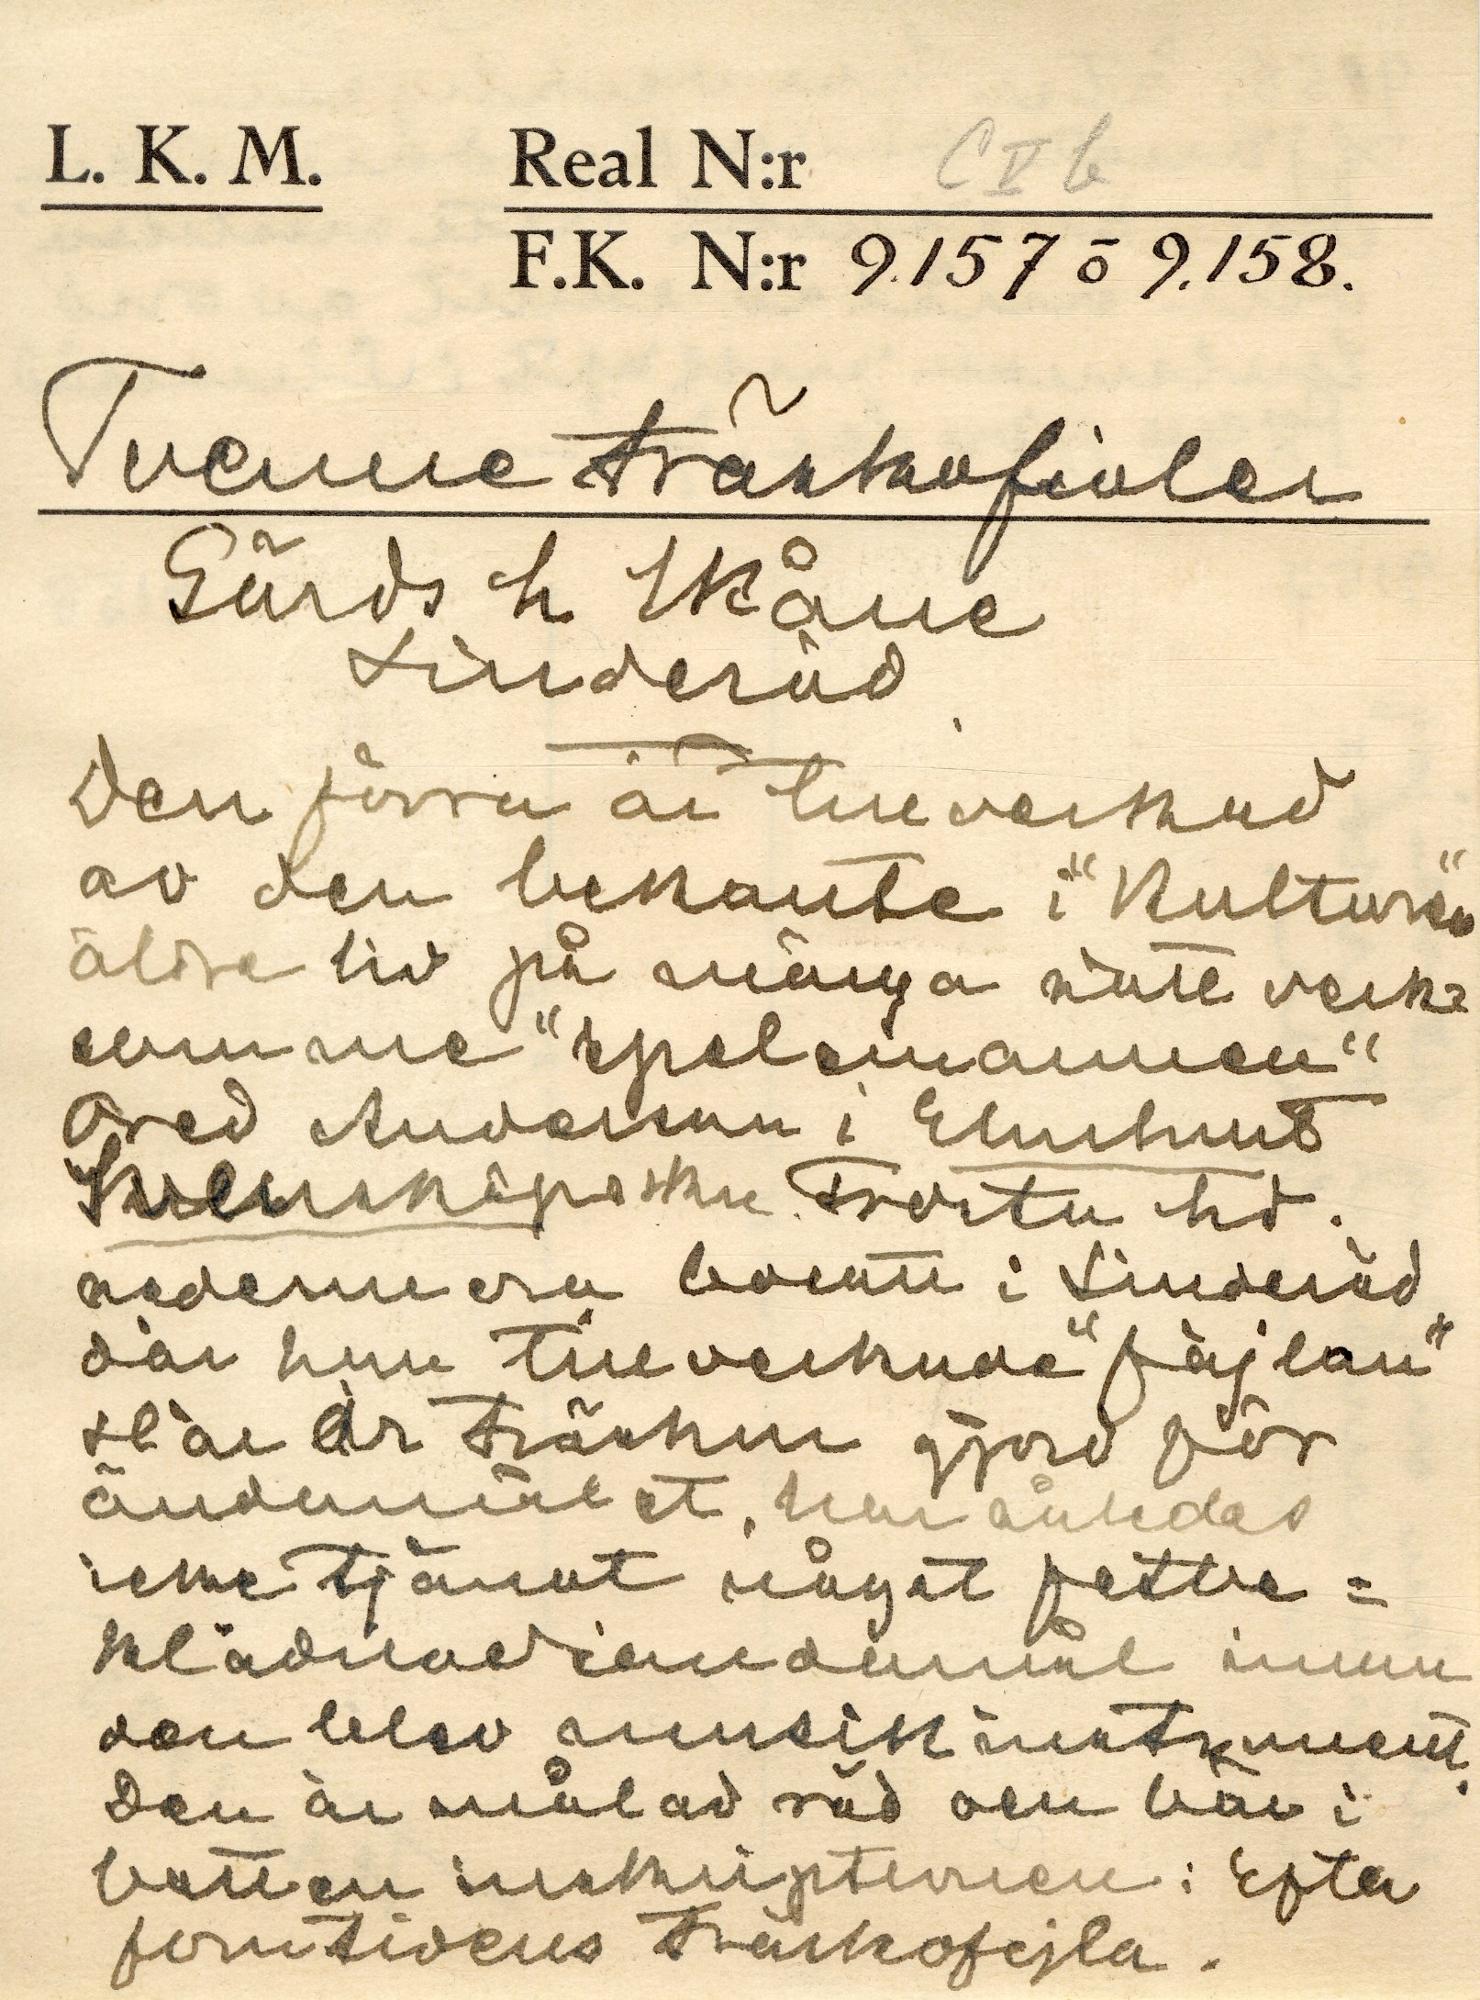 L. K. M. Real N:r C V b
F.K. N:r 9.157 o 9.158.
Tvenne träskofioler
Gärds h Skåne
Linderöd
Den förra är tillverkad
av den bekante i "Kulturen"
äldre liv på många sätt verk=
samme "spelemannen"
Ored Anderson i Ehuhus
Svensköps skn. Frosta hd.
sedermera boent i Linderöd
där han tillverkade "fäjlan"
Här är träskon gjord för
ändamålet, har således
icke tjänat något fotbe=
klädnadsändamål innan
den blev musikinstrument.
Den är målad röd och bär i
botten inskriptionen: Efter
forntidens träskofejla.